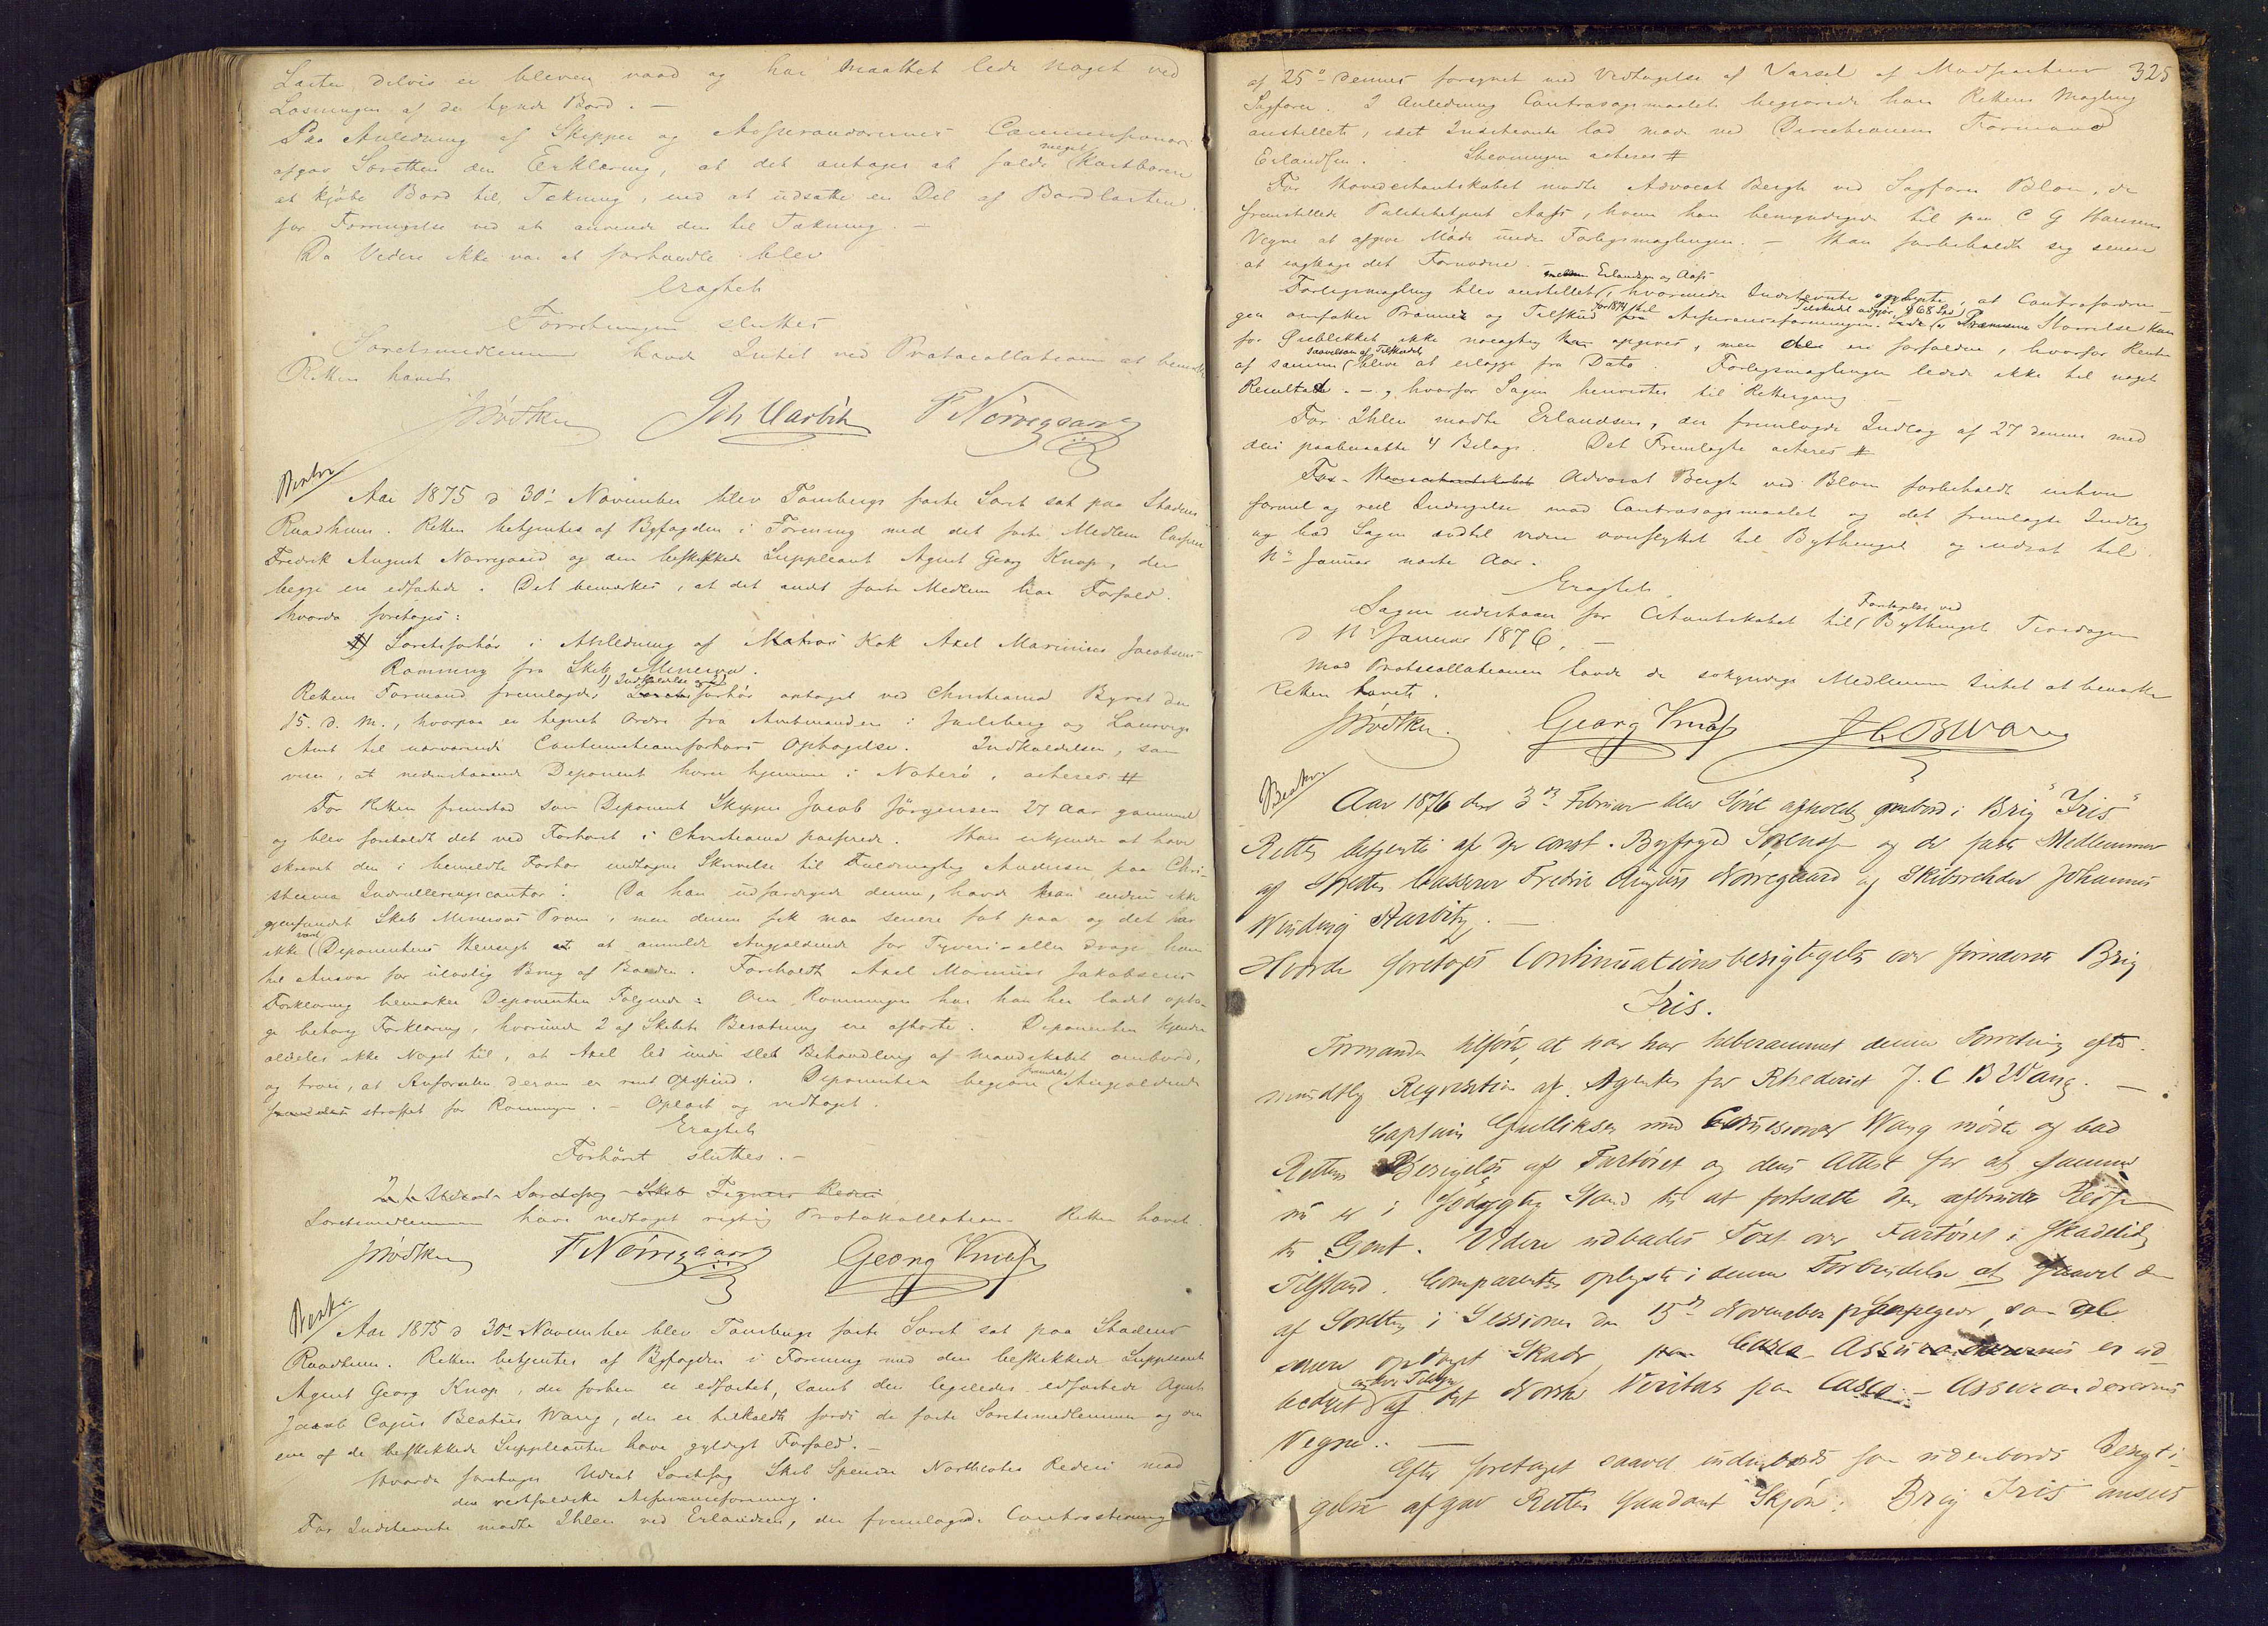 Lasten delvis er bleven vaad og har maattet lide noget ved
Losningen af de tynde Bord. —
Paa Anledning af Skipper og Assurandørernes Commissionær
afgav Søretten den Erklæring, at det antages at falde meget kostbarere
at kjøbe Bord til Tækning, end at udsætte en Del af Bordlasten
for Forringelse ved at anvende den til Tækning. —
Da Videre ikke var at forhandle blev
Eragtet
Forretningen sluttes
Søretsmedlemmerne havde Intet ved Protocollationen at bemærke
Retten hævet
Joh Aarbits F Nørregaard
Aar 1875 d 30te November blev Tønsbergs faste Søret sat paa Stadens
Raadhuus. Retten betjentes af Byfogden i Forening med det faste Medlem Casserer
Fredrik August Nørregaard og den beskikkede Suppleant Agent Georg Knap, der
begge ere edfæstede. Det bemærkes, at det andet faste Medlem har Forfald.
hvorda foretoges:
1) Søretsforhør i Anledning af Matros Kok Axel Marinius Jacobsens
Rømning fra Skib Minerva.
Rettens Formand fremlagde 1) Indkaldelse og 2) forhør optaget ved Christiania Byret den
15. d. M., hvorpaa er tegnet Ordre fra Amtmanden i Jarlsberg og Laurvigs
Amt til nærværende Continuationsforhørs Optagelse. Indkaldelsen, som
viser, at nedenstaaende Deponent hører hjemme i Nøterø, acteres #
For Retten fremstod som Deponent Skipper Jacob Jørgensen 27 Aar gammel
og blev foreholdt det ved Forhøret i Christiania passerede. Han erkjender at have
skrevet den i bemeldte Forhør indtagne Skrivelse til Fuldmægtig Andersen paa Chri-
stiania Indrulleringscontor. Da han udfærdigede denne, havde han endnu ikke
gjenfundet Skib Minervas Pram, men denne fik man senere fat paa og det har
ikke været Deponentens Hensigt at anmelde Angjældende for Tyveri eller drage ham
til Ansvar for ulovlig Brug af Baaden. Foreholdt Axel Marinius Jakobsens
Forklaring bemærker Deponenten Følgende: Om Rømningen har han her ladet opta-
ge behørig Forklaring, hvorunder 2 af Skibets Besætning ere afhørte. Deponenten kjender
aldeles ikke Noget til, at Axel led under slet Behandling af Mandskabet ombord,
og troer, at Anførselen derom er rent Opspind. Deponenten begjærer Angjældende
straffet for Rømningen. — Oplæst og vedtaget.
Eragtet
Forhøret sluttes. —
Søretsmedlemmerne have vedtaget rigtig Protokollation. Retten hævet.
F Nørregaard Georg Knap
Aar 1875 d 30te November blev Tønsbergs faste Søret sat paa Stadens
Raadhuus. Retten betjentes af Byfogden i Forening med den beskikkede Suppleant
Agent Georg Knap, der forhen er edfæstet, samt den ligeledes edfæstede Agent
Jacob Cajus Beatus Wang, der er tilkaldt fordi de faste Søretsmedlemmer og den
ene af de beskikkede Suppleanter have gyldigt Forfald. —
Hvorda foretoges Udsat Søretssag Skib Spencer Northcotes Rederi mod
den vestfoldske Assuranceforening.
For Indstevnte mødte Ihlen ved Erlandsen, der fremlagde Contrastevning
325
af 25de dennes forsynet med Vedtagelse af Varsel af Modpartens
Sagfører. I Anledning Contrasøgsmaalet begjærede han Rettens Mægling
anstillet, idet Indstevnte lod møde ved Directionens Formand
Erlandsen. Stevningen acteres #
For Hovedcitantskabet mødte Advocat Bergh ved Sagfører Blom, der
fremstillede Politibetjent Aass, hvem han bemyndigede til paa C G Hansens
Vegne at afgive Møde under Forligsmæglingen. — Han forbeholdt sig senere
at iagttage det Fornødne. —
Forligsmægling blev anstillet mellem Erlandsen og Aass, hvorunder Indstevnte oplyste, at Contrafordrin-
gen omfatter Præmier og Tilskud for 1874 til Assuranceforeningen. Tilskudet udgjør Størrelse kan
for Øieblikket ikke nøiagtig opgives, men er forfalden, hvorfor Renter
af samme saavelsom af Tilskudet blive at erlægge fra Dato. Forligsmæglingen ledede ikke til noget
Resultat. —, hvorfor Sagen henvistes til Rettergang. —
For Ihlen mødte Erlandsen, der fremlagde Indlæg af 27 dennes med
deri paaberaabte 4 Bilage. Det Fremlagte acteres #
Advocat Bergh ved Blom forbeholdt enhver
formel og reel Indsigelse mod Contrasøgsmaalet og det fremlagte Indlæg
og bad Sagen indtil videre overflyttet til Bythinget og udsat til
11te Januar næste Aar.
Eragtet
Sagen udstaar for Citantskabet til Foretagelse ved Bythinget Tirsdagen
d 11te Januar 1876. —
Mod Protocollationen havde de søkyndige Medlemmer Intet at bemærke
Retten hævet.
Georg Knap J C B Wang
Aar 1876 den 3die Februar blev Søret afholdt ombord i Brig "Iris"
Retten betjentes af const. Byfoged Sørensen og de faste Medlemmer
af Søretten Casserer Fredrik August Nørregaard og Skibsrheder Johannes
Winding Aarbits. —
Hvorda foretoges Continuationsbesigtigelse over førnævnte Brig
Iris.
Formanden tilførte, at han har beberammet denne Forretning efter
mundtlig Reqvisition af Agenten for Rhederiet J. C B Wang. —
Captain Gulliksen med Commissionær Wang mødte og bad
Rettens Besigtigelse af Fartøiet og dens Attest for at samme
nu er i sødygtig Stand til at fortsætte den afbrudte Reise
til Gent. Videre udbades Taxt over Fartøiet i skadeslidt
Tilstand. Comparenten oplyste i denne Forbindelse at saavel den
af Søretten i Sessionen den 15de November paapegede, som de
senere opdaget Skade er ud-
bedret under Tilsyn af Det Norske Veritas paa Casco-Assurandørernes
Vegne. —
Efter foretaget saavel indenbords som udenbords Besigti-
gelse afgav Retten saadant Skjøn: Brig Iris ansees